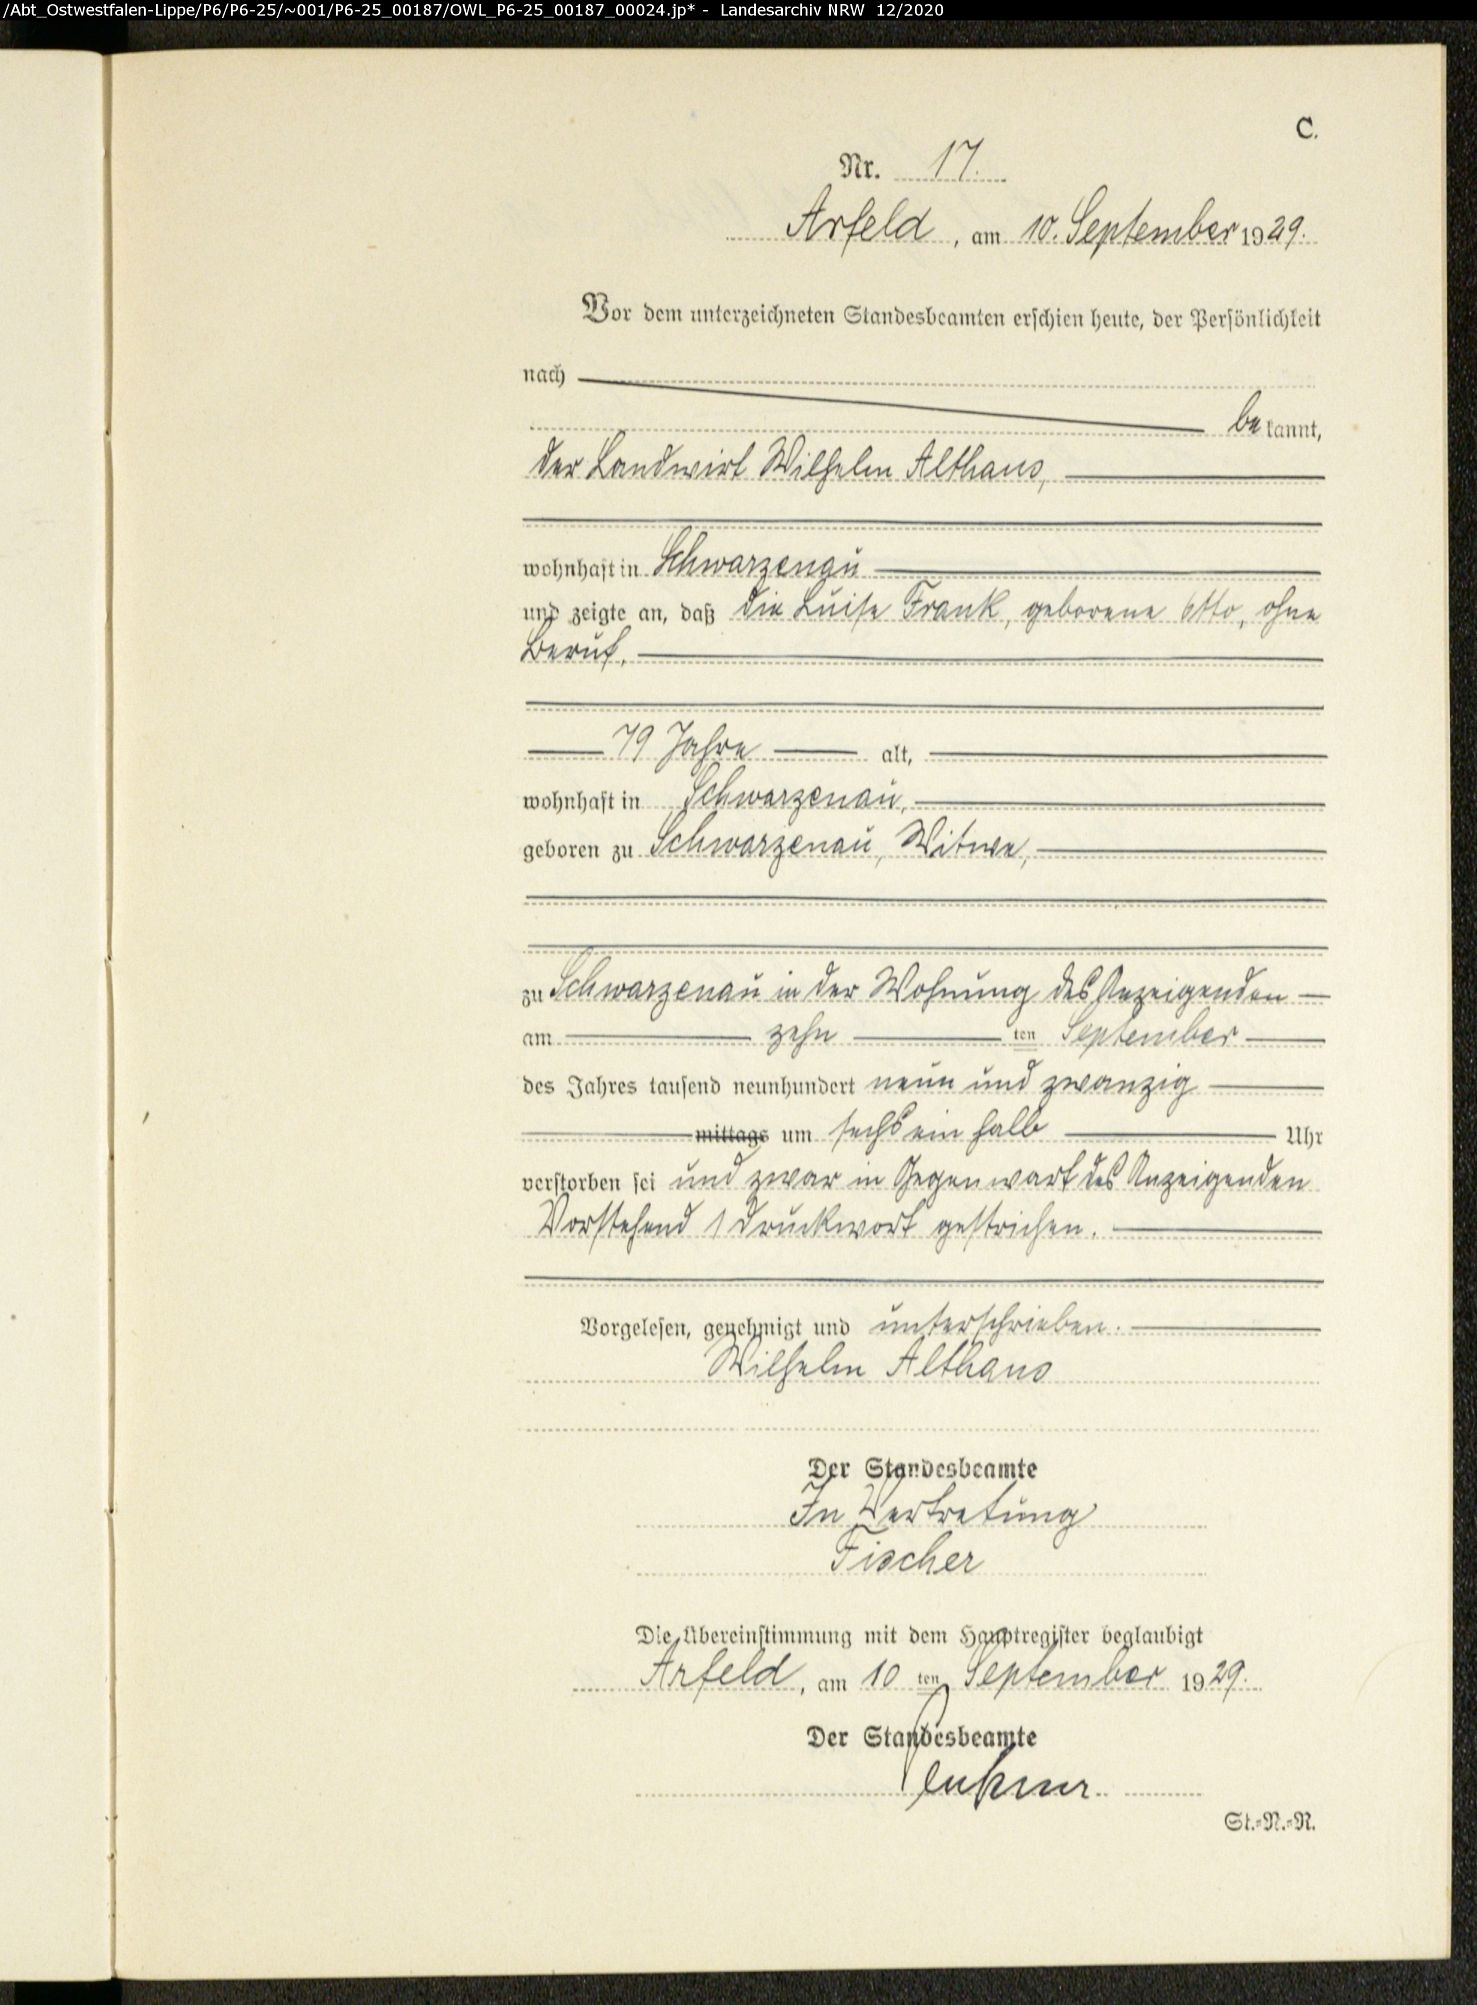 /Abt_Ostwestfalen-Lippe/P6/P6-25/~001/P6-25_00187/OWL_P6-25_00187_00024.jp* - Landesarchiv NRW 12/2020
C.
Nr. 17.
Arfeld, am 10. September 1929.
Vor dem unterzeichneten Standesbeamten erschien heute, der Persönlichkeit
nach
bekannt,
der Landwirt Wilhelm Althaus,
wohnhaft in Schwarzenau
und zeigte an, daß die Luise Frank, geborene Otto, ohne
Beruf,
79 Jahre alt,
wohnhaft in Schwarzenau,
geboren zu Schwarzenau, Witwe,
zu Schwarzenau in der Wohnung des Anzeigenden
am zehn ten September
des Jahres tausend neunhundert neun und zwanzig
mittags um sechs ein halb Uhr
verstorben sei und zwar in Gegenwart des Anzeigenden
Vorstehend 1 Druckwort gestrichen.
Vorgelesen, genehmigt und unterschrieben.
Wilhelm Althaus
Der Standesbeamte
In Vertretung
Fischer
Die Übereinstimmung mit dem Hauptregister beglaubigt
Arfeld, am 10 ten September 1929.
Der Standesbeamte
St.=N.=R.